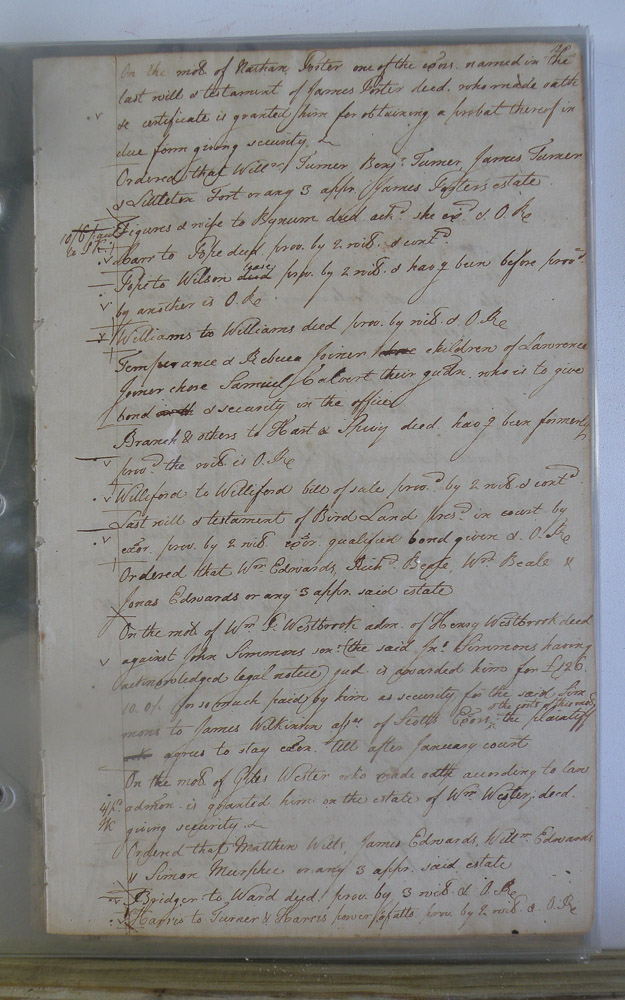 On the mot of Nathan Foster one of the exors. named in the
last will & testament of James Foster decd. who made oath
&c certificate is granted him for obtaining a probat thereof in
due form giving security
Ordered that Willm Turner Benj. Turner, James Turner
& Littleton Fort or any 3 appr. James Foster's estate
Figures & wife to Bynum deed ack.d she exd & O. Re
Carr to Pope deed prov. by 2 wits. & contd
Pope to Wilson prov. by 2 wits. & havg been before provd
by another is O. Re
Williams to Williams deed prov. by wits. & O. Re
Temperance & Rebecca Joiner children of Lawrence
Joiner chose Samuel Calvert their gudn. who is to give
bond & security in the office
Branch & others to Hart & Spivy deed havg been formerly
provd the wits. is O. Re
Williford to Williford bill of sale prov.d by 2 wits. & contd
Last will & testament of Bird Land presd in court by
exor. prov. by 2 wits. exor. qualified bond given & O. Re
Ordered that Wm Edwards, Richd. Beale, Wm Beale &
Jonas Edwards or any 3 appr. said estate
On the mot of Wm Westbrook adm. of Henry Westbrook decd
against John Simmons (the said Jn. Simmons having
acknowledged legal notice) jud. is awarded him for £126.
10.0½ for so much paid by him as security for the said Sim
mons to James Wilkinson of Scott's Exors, & the costs of this mot the plaintiff
agrees to stay exon. till after January court
On the mot of Giles Wester who made oath according to law
admon. is granted him on the estate of Wm Wester, decd.
giving security &
Ordered that Matthew Wills, James Edwards, Willm. Edwards
& Simon Murphee or any 3 appr. said estate
Bridger to Ward deed prov. by 3 wits. & O. Re
Harris to Turner & Harris power of atto. prov. by 2 wits. & O. Re